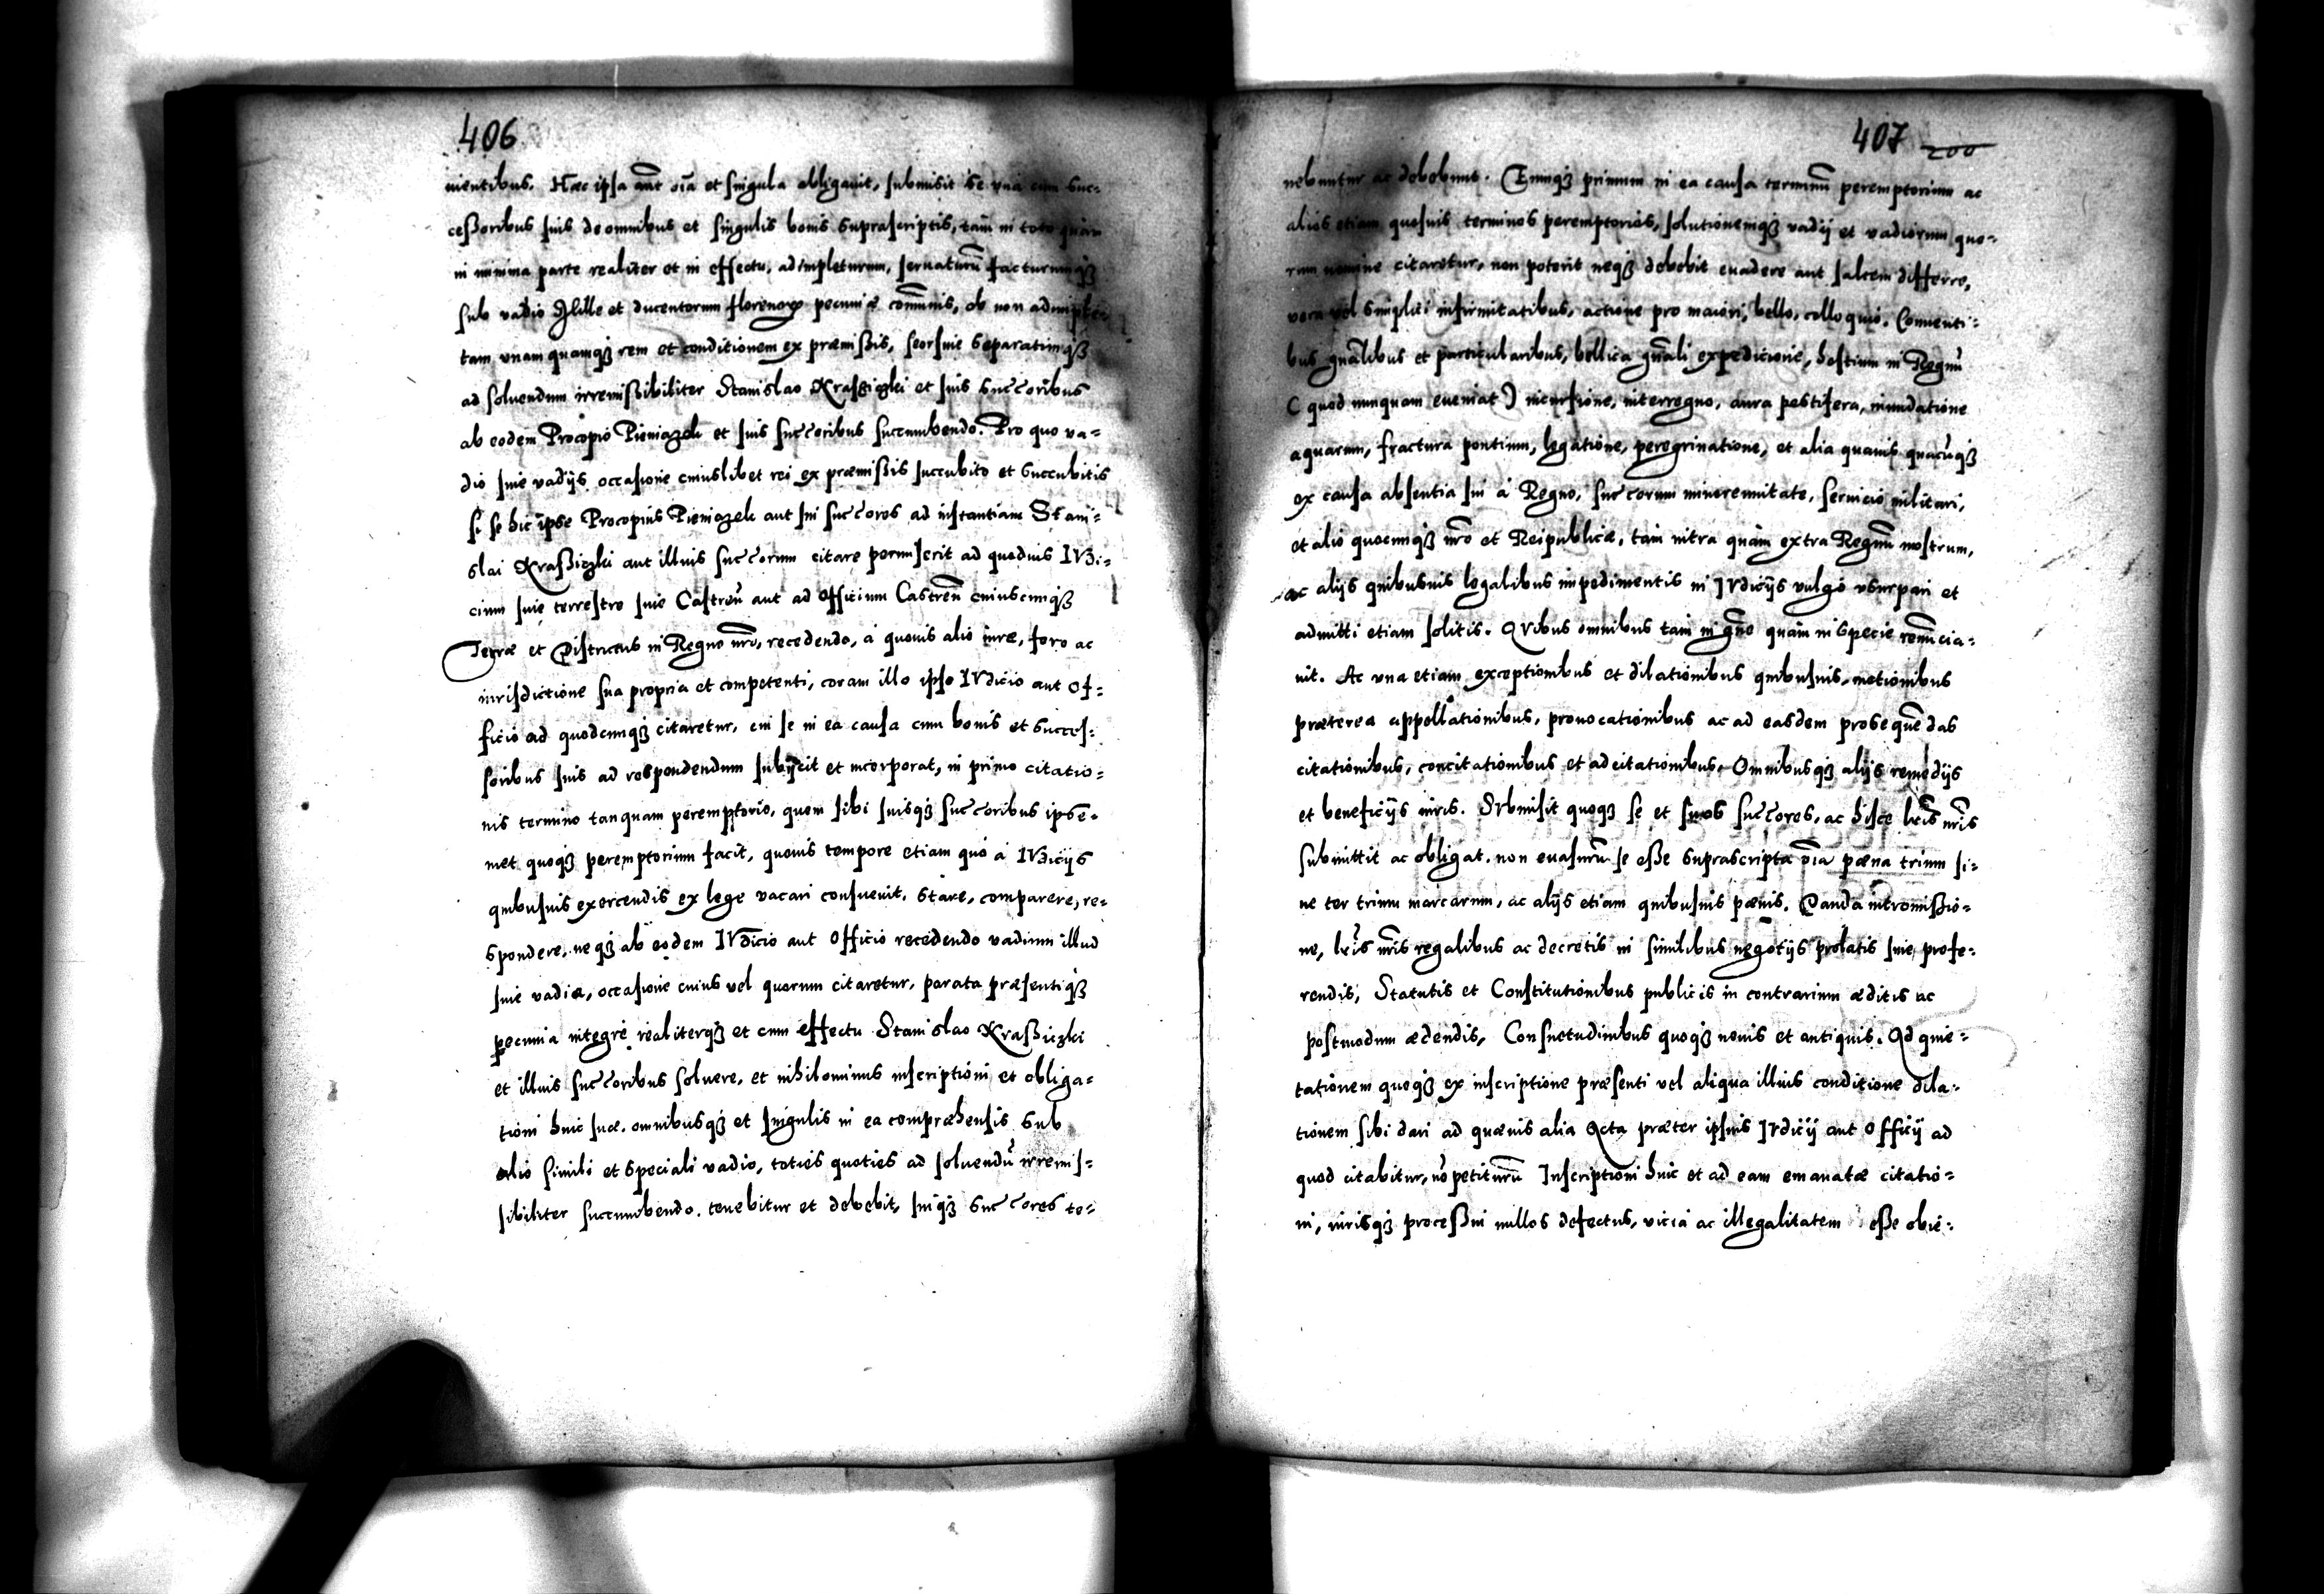 406
nientibus. Hæc ipsa aūt oīa et singula obligauit, submisit se vna cum suc=
ceßoribus suis de omnibus et singulis bonis suprascriptis, tam in toto quàm
in minima parte realiter et in effectu, adimpleturum, seruaturū facturumqȝ
sub vadio Mille et ducentorum florenorum pecuniæ com̄unis, ob non adimple=
tam vnam quamqȝ rem et conditionem ex præmißis, seorsiue separatimqȝ
ad soluendum irremißibiliter Stanislao Kraßiczki et suis succ̄oribus
ab eodem Procopio Pieniazek et suis succ̄oribus succumbendo. Pro quo va=
dio siue vadijs occasione cuiuslibet rei ex præmißis succubito et succubitis
si se hic ipse Procopius Pieniazek aut sui succ̄ores ad instantiam Stani=
slai Kraßiczki aut illius succ̄orum citare permiserit ad quoduis IVdi=
cium siue terrestre siue Castren̄ aut ad officium Castren̄ cuiuscunqȝ
Terræ et Districtus in Regno nr̄o, recedendo, a quouis alio iure, foro ac
iurisdictione sua propria et competenti, coram illo ipso IVdicio aut of=
ficio ad quodcunqȝ citaretur, cui se in ea causa cum bonis et succes=
soribus suis ad respondendum subijcit et incorporat, in primo citatio=
nis termino tanquam peremptorio, quem sibi suisqȝ succ̄oribus ipse=
met quoqȝ peremptorium facit, quouis tempore etiam quo à IVdicijs
quibusuis exercendis ex lege vacari consueuit, stare, comparere, re=
spondere, neqȝ ab eodem IVdicio aut officio recedendo vadium illud
siue vadia, occasione cuius vel quorum citaretur, parata præsentiqȝ
pecunia integrè realiterqȝ et cum effectu Stanislao Kraßiczki
et illius succ̄oribus soluere, et nihilominus inscriptioni et obliga=
tioni huic suæ, omnibusqȝ et singulis in ea compræhensis sub
alio simili et speciali vadio, toties quoties ad soluendū irremis=
sibiliter succumbendo, tenebitur et debebit, suiqȝ succ̄ores te=
407 200
nebuntur ac debebunt. Eumqȝ primum in ea causa terminū peremptorium ac
alios etiam quosuis terminos peremptorios, solutionemqȝ vadij et vadiorum quo=
rum nomine citaretur, non poterit neqȝ debebit euadere aut saltem differre,
vera vel simplici infirmitatibus, actione pro maiori, bello, colloquio, Conuenti=
bus gn̄alibus et particularibus, bellica gn̄ali expeditione, hostium in Regnū
( quod nunquam eueniat ) incursione, interregno, aura pestifera, inundatione
aquarum, fractura pontium, legatione, peregrinatione, et alia quauis quacūqȝ
ex causa absentia sui à Regno, succ̄orum minorennitate, seruicio militari,
et alio quocunqȝ nr̄o et Reipublicæ, tam intra quàm extra Regnū nostrum,
ac alijs quibusuis legalibus impedimentis in IVdicijs vulgò vsurpari et
admitti etiam solitis. QVibus omnibus tam in gn̄e quàm in specie renūcia=
uit. Ac vna etiam exceptionibus et dilationibus quibusuis, motionibus
præterea appellationibus, prouocationibus ac ad easdem prosequēdas
citationibus, concitationibus et adcitationibus, Omnibusqȝ alijs remedijs
et beneficijs iuris. SVbmisit quoqȝ se et suos succ̄ores, ac hisce lr̄is nr̄is
submittit ac obligat, non euasurū se eße suprascripta oīa pæna trium si=
ne ter trium marcarum, ac alijs etiam quibusuis pænis. Danda intromißio=
ne, lr̄is nr̄is regalibus ac decretis in similibus negotijs prolatis siue profe=
rendis, Statutis et Constitutionibus publicis in contrarium æditis ac
postmodum ædendis, Consuetudinibus quoqȝ nouis et antiquis. Ad quie=
tationem quoqȝ ex inscriptione præsenti vel aliqua illius conditione dila=
tionem sibi dari ad quæuis alia Acta præter ipsius IVdicij aut officij ad
quod citabitur, nō petiturū Inscriptioni huic et ad eam emanatæ citatio=
ni, iurisqȝ proceßui nullos defectus, vicia ac illegalitatem eße obie=